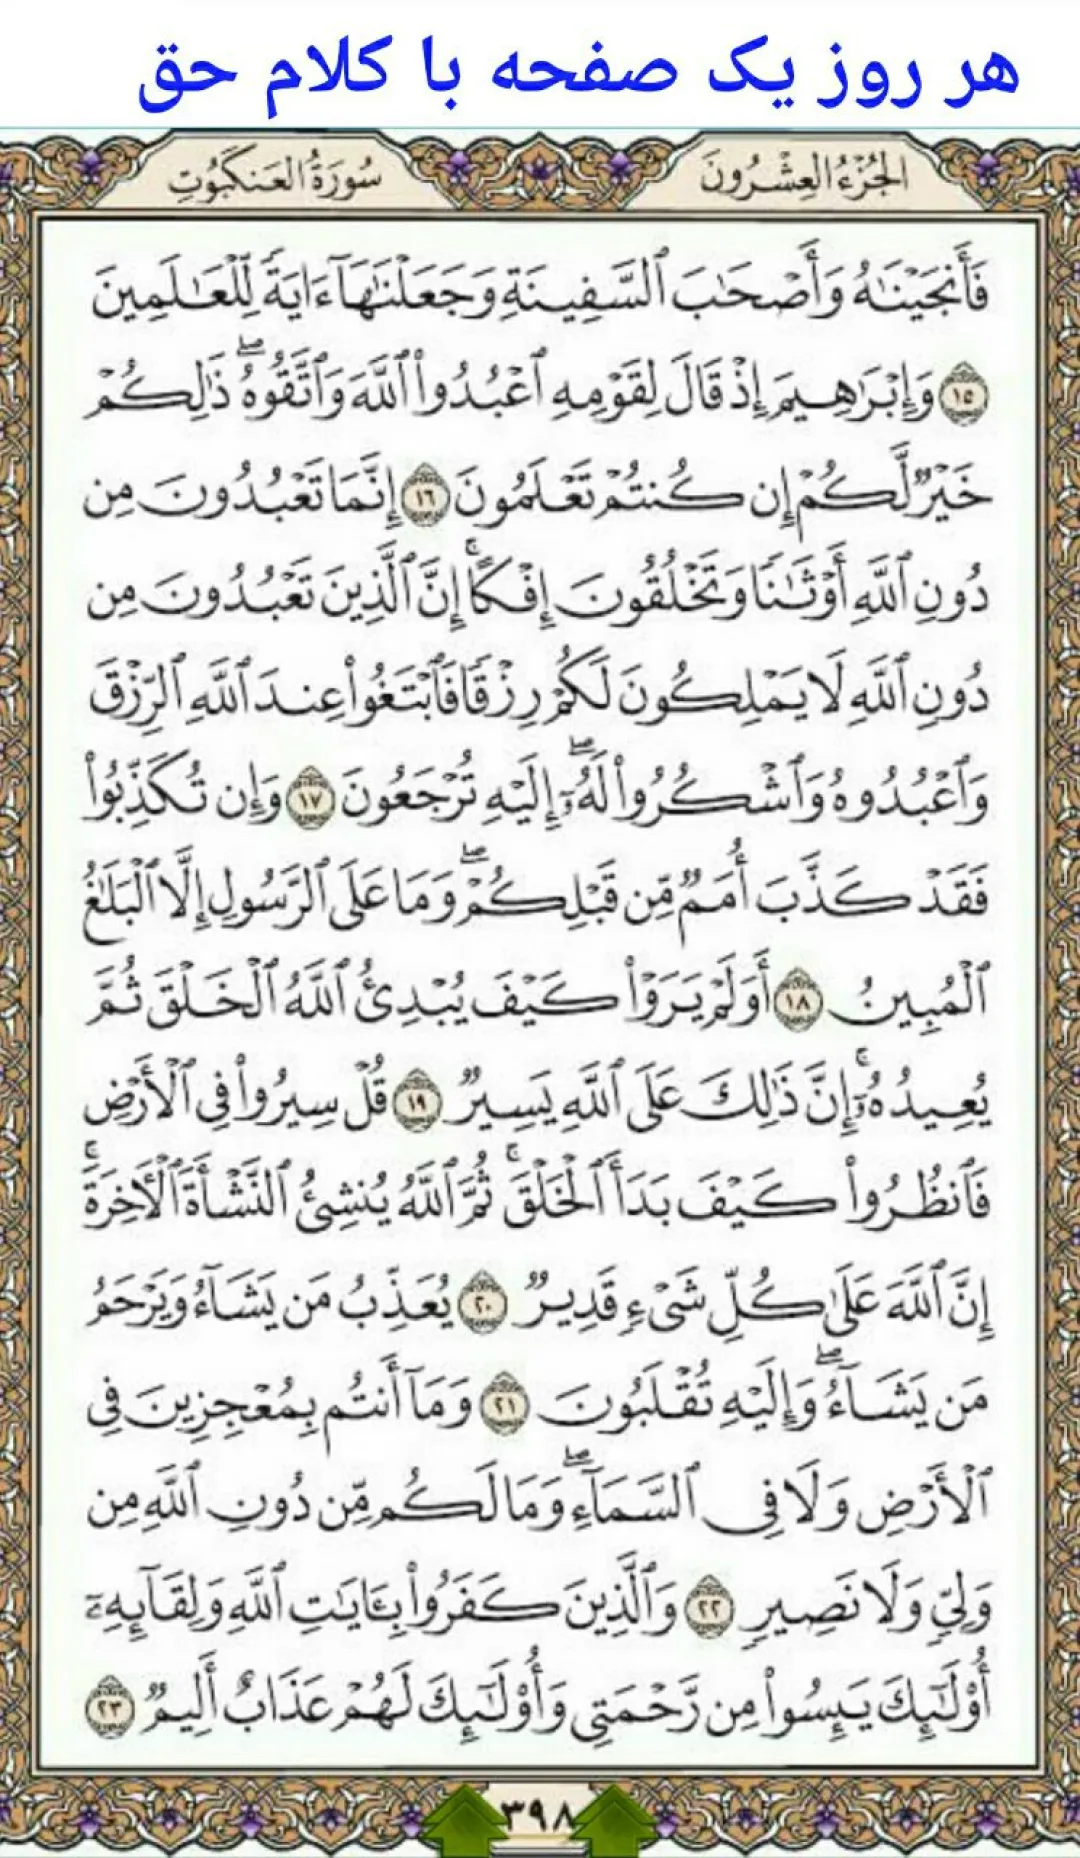 هر روز یک صفحه با کلام حق
الجُزْءُ العِشْرُونَ
سُورَةُ العَنكَبُوتِ
فَأَنجَيْنَٰهُ وَأَصْحَٰبَ ٱلسَّفِينَةِ وَجَعَلْنَٰهَآ ءَايَةً لِّلْعَٰلَمِينَ
١٥ وَإِبْرَٰهِيمَ إِذْ قَالَ لِقَوْمِهِ ٱعْبُدُوا۟ ٱللَّهَ وَٱتَّقُوهُ ۖ ذَٰلِكُمْ
خَيْرٌ لَّكُمْ إِن كُنتُمْ تَعْلَمُونَ ١٦ إِنَّمَا تَعْبُدُونَ مِن
دُونِ ٱللَّهِ أَوْثَٰنًا وَتَخْلُقُونَ إِفْكًا ۚ إِنَّ ٱلَّذِينَ تَعْبُدُونَ مِن
دُونِ ٱللَّهِ لَا يَمْلِكُونَ لَكُمْ رِزْقًا فَٱبْتَغُوا۟ عِندَ ٱللَّهِ ٱلرِّزْقَ
وَٱعْبُدُوهُ وَٱشْكُرُوا۟ لَهُۥٓ ۖ إِلَيْهِ تُرْجَعُونَ ١٧ وَإِن تُكَذِّبُوا۟
فَقَدْ كَذَّبَ أُمَمٌ مِّن قَبْلِكُمْ ۖ وَمَا عَلَى ٱلرَّسُولِ إِلَّا ٱلْبَلَٰغُ
ٱلْمُبِينُ ١٨ أَوَلَمْ يَرَوْا۟ كَيْفَ يُبْدِئُ ٱللَّهُ ٱلْخَلْقَ ثُمَّ
يُعِيدُهُۥٓ ۚ إِنَّ ذَٰلِكَ عَلَى ٱللَّهِ يَسِيرٌ ١٩ قُلْ سِيرُوا۟ فِى ٱلْأَرْضِ
فَٱنظُرُوا۟ كَيْفَ بَدَأَ ٱلْخَلْقَ ۚ ثُمَّ ٱللَّهُ يُنشِئُ ٱلنَّشْأَةَ ٱلْءَاخِرَةَ ۚ
إِنَّ ٱللَّهَ عَلَىٰ كُلِّ شَىْءٍ قَدِيرٌ ٢٠ يُعَذِّبُ مَن يَشَآءُ وَيَرْحَمُ
مَن يَشَآءُ ۖ وَإِلَيْهِ تُقْلَبُونَ ٢١ وَمَآ أَنتُم بِمُعْجِزِينَ فِى
ٱلْأَرْضِ وَلَا فِى ٱلسَّمَآءِ ۖ وَمَا لَكُم مِّن دُونِ ٱللَّهِ مِن
وَلِىٍّ وَلَا نَصِيرٍ ٢٢ وَٱلَّذِينَ كَفَرُوا۟ بِـَٔايَٰتِ ٱللَّهِ وَلِقَآئِهِۦٓ
أُو۟لَٰٓئِكَ يَئِسُوا۟ مِن رَّحْمَتِى وَأُو۟لَٰٓئِكَ لَهُمْ عَذَابٌ أَلِيمٌ ٢٣
٣٩٨